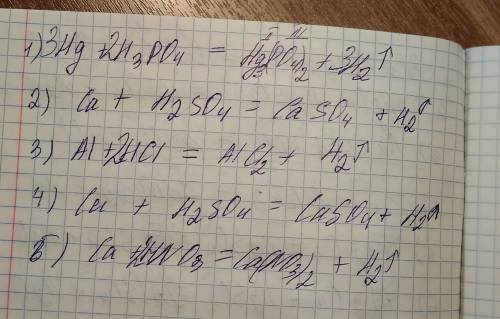 II III
1) 3Hg + 2H3PO4 = Hg3(PO4)2 + 3H2↑
2) Ca + H2SO4 = CaSO4 + H2↑
3) Al + 2HCl = AlCl2 + H2↑
4) Cu + H2SO4 = CuSO4 + H2↑
5) Ca + 2HNO3 = Ca(NO3)2 + H2↑